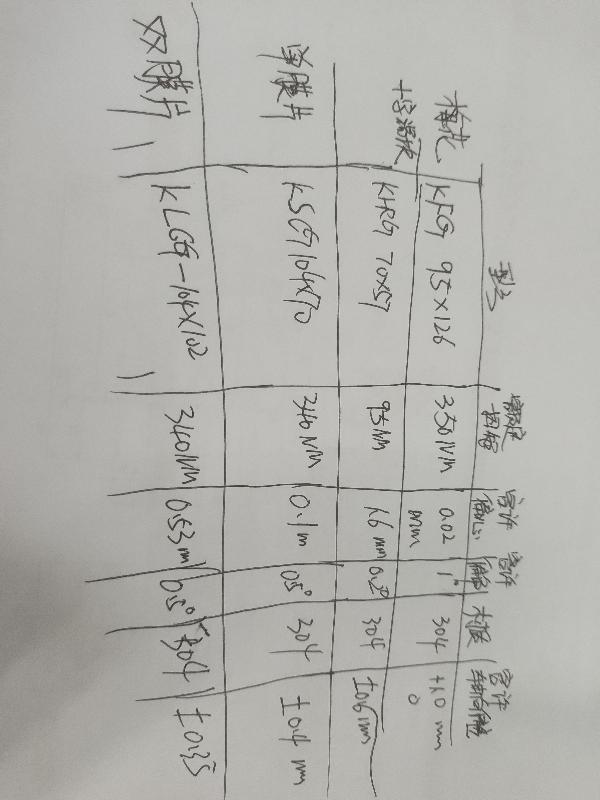 型号 额定扭矩 容许偏心 容许偏角 材质 容许轴向偏位
梅花 KFG 95×126 350NM 0.02mm 1° 304 +1.0 mm 0
十字滑块 KHRG 70×57 95NM 1.6mm 304 ±0.6mm
单膜片 KSG7104×70 340NM 0.1m 0.5° 304 ±0.4 m
双膜片 KLGG-104×102 340NM 0.53m 0.5° 304 ±0.35